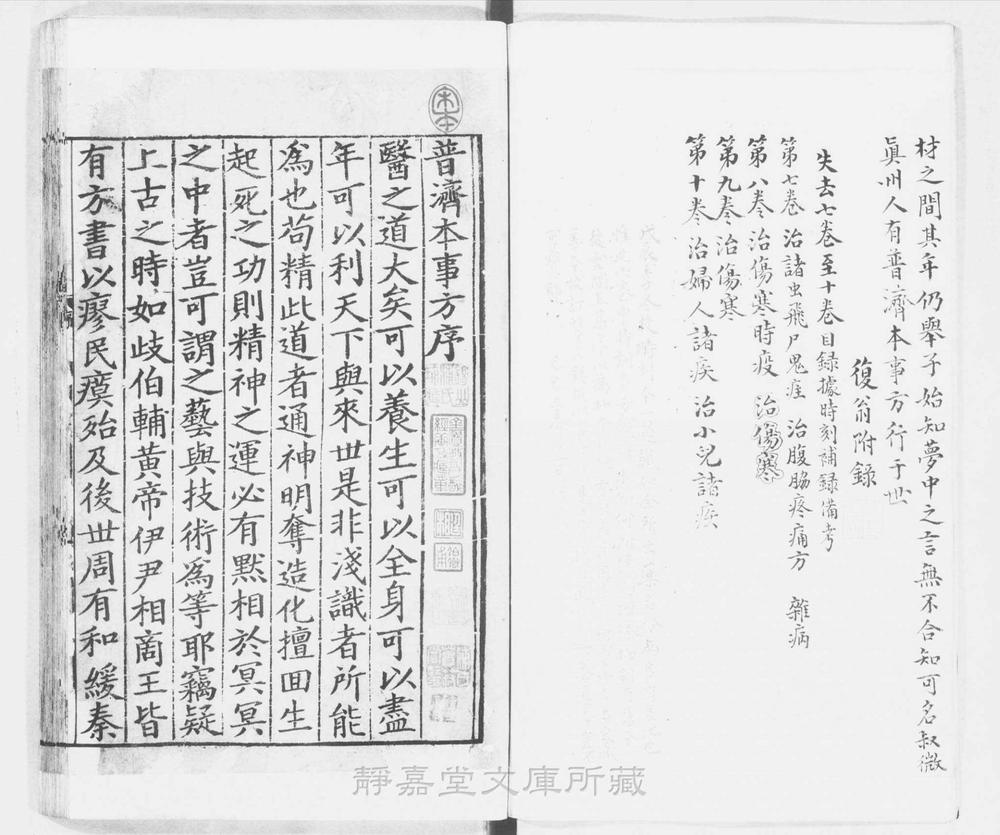 材之間其年仍舉子始知夢中之言無不合知可名叔微
眞州人有普濟本事方行于世
復翁附録
失去七卷至十卷目録據時刻補録備考
第七卷治諸虫飛尸鬼疰 治腹脇疼痛方 雜病
第八卷治傷寒時疫 治傷寒
第九卷治傷寒
第十卷治婦人諸疾 治小兒諸疾
普濟本事方序
醫之道大矣可以養生可以全身可以盡
年可以利天下與來世是非淺識者所能
爲也苟精此道者通神明奪造化擅回生
起死之功則精神之運必有默相於冥冥
之中者豈可謂之藝與技術爲等耶竊疑
上古之時如歧伯輔黃帝伊尹相商王皆
有方書以瘳民瘼殆及後世周有和緩秦
靜嘉堂文庫所藏